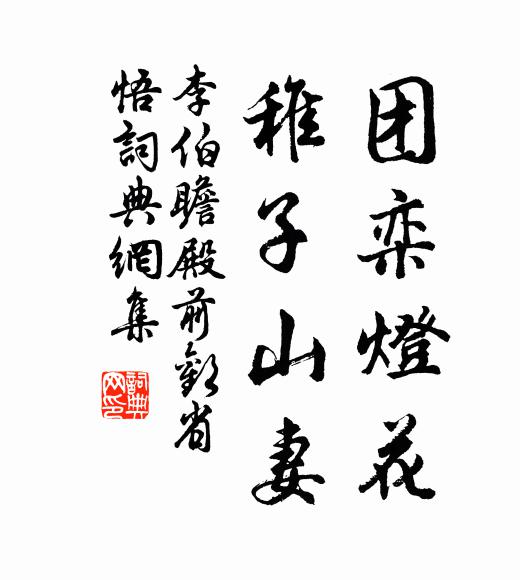 团奕燈花
稚子山妻
李伯瞻殿前歡省
悟詞典網集
詞典网印